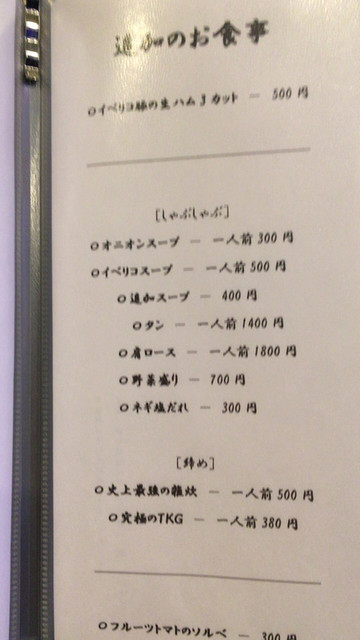 追加のお食事
○イベリコ豚の生ハム3カット － 500円
[しゃぶしゃぶ]
○オニオンスープ － 一人前300円
○イベリコスープ － 一人前500円
○追加スープ － 400円
○タン － 一人前1400円
○肩ロース － 一人前1800円
○野菜盛り － 700円
○ネギ塩だれ － 300円
[締め]
○史上最強の雑炊 － 一人前500円
○究極のTKG － 一人前380円
○フルーツトマトのソルベ － 300円